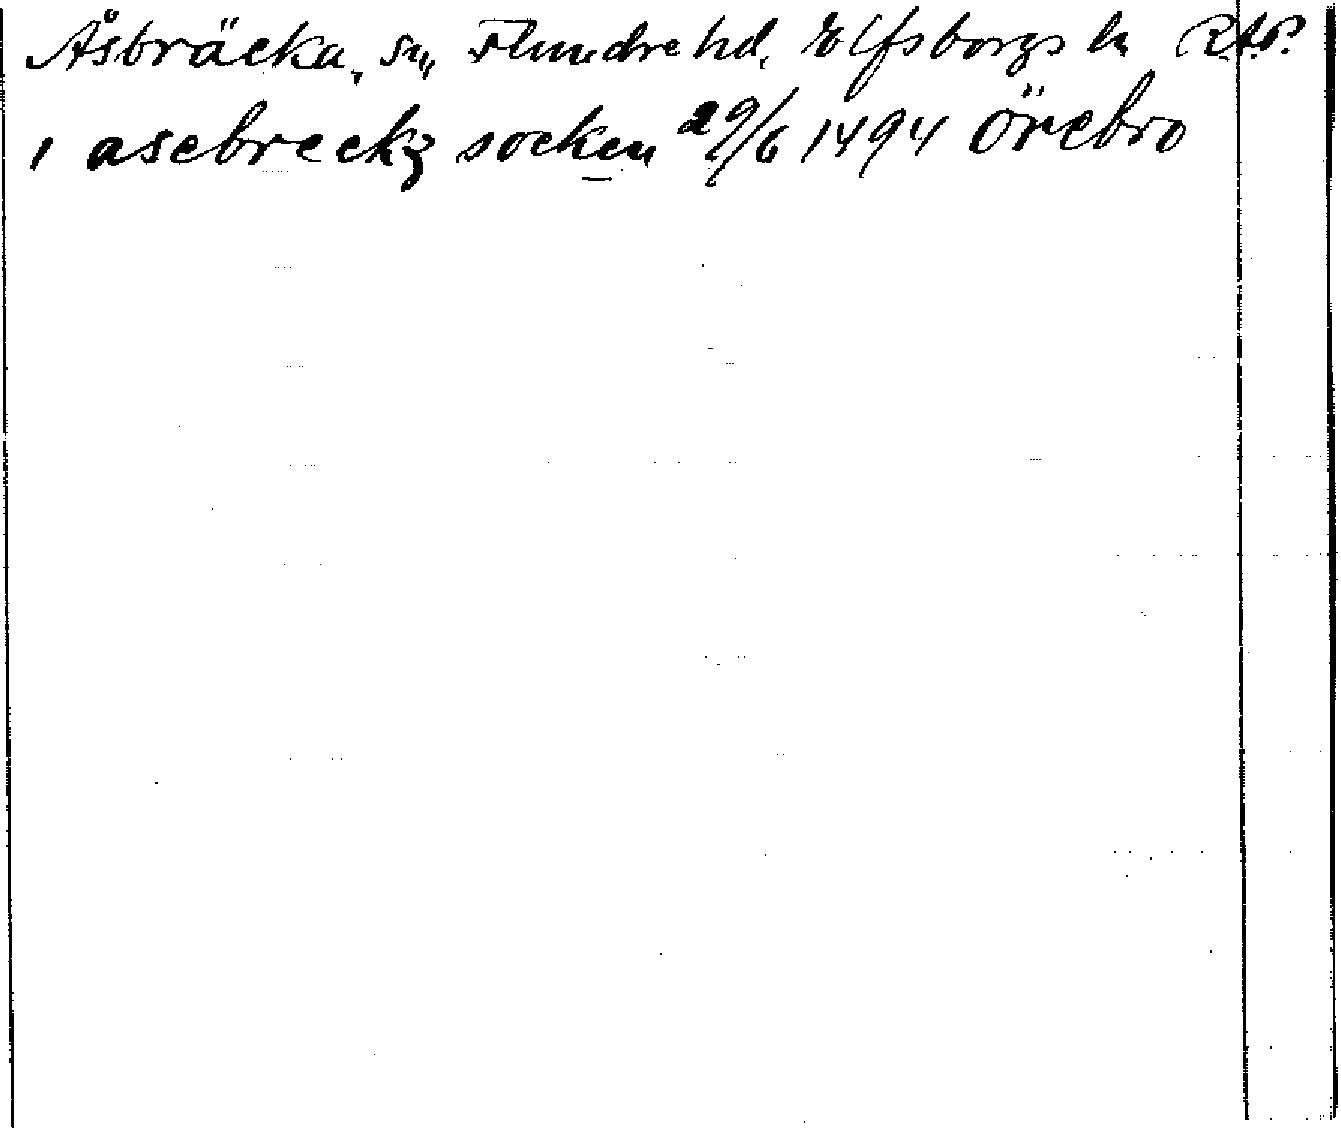 Åsbräcka, sn, Flundre hd, Elfsborgs ln RAP.
i asebreckz socken 29/6 1494 Örebro